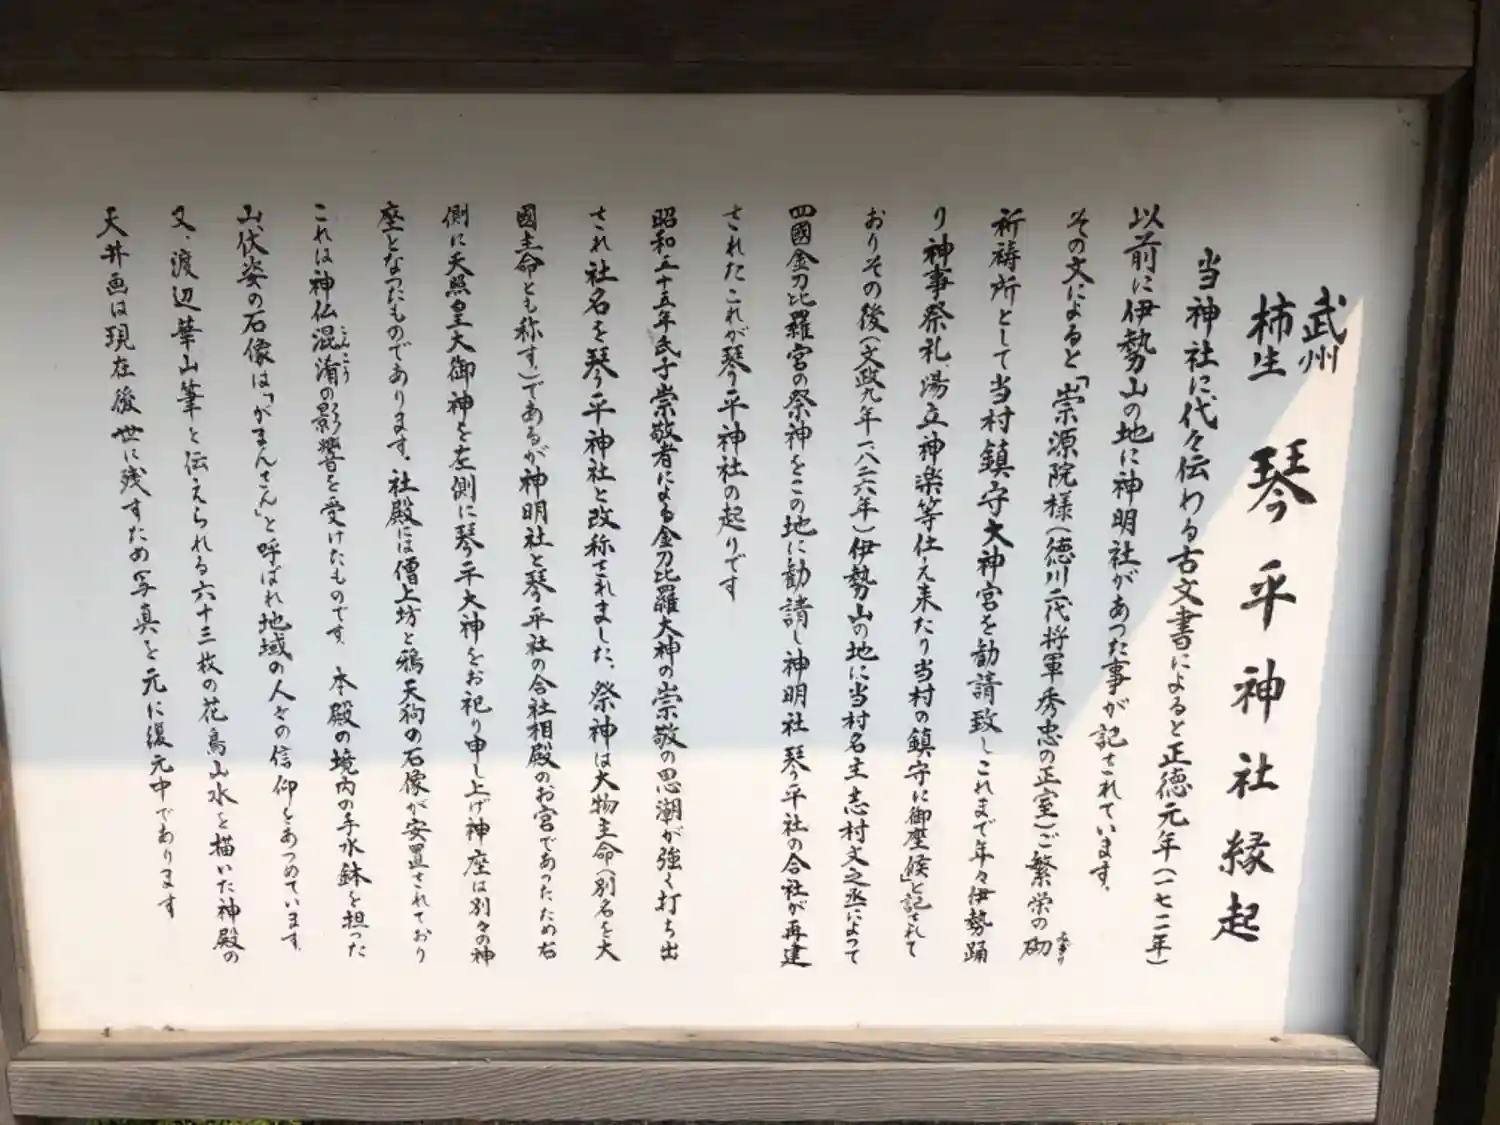 武州
柿生
琴平神社縁起
当神社に代々伝わる古文書によると正徳元年(一七一一年)
以前に伊勢山の地に神明社があった事が記されています。
その文によると「崇源院様(徳川二代将軍秀忠の正室)ご繁栄の砌
みぎり
祈祷所として当村鎮守大神宮を勧請致しこれまで年々伊勢踊
り神事祭礼湯立神楽等仕え来たり当村の鎮守に御座候」と記されて
おりその後(文政九年一八二六年)伊勢山の地に当村名主志村文之丞によって
四國金刀比羅宮の祭神をこの地に勧請し神明社琴平社の合社が再建
されたこれが琴平神社の起りです
昭和五十五年氏子崇敬者による金刀比羅大神の崇敬の思潮が強く打ち出
され社名を琴平神社と改称されました。祭神は大物主命(別名を大
國主命とも称す)であるが神明社と琴平社の合社相殿のお宮であったため右
側に天照皇大御神を左側に琴平大神をお祀り申し上げ神座は別々の神
座となったものであります。社殿には僧上坊と鴉天狗の石像が安置されており
これは神仏混淆の影響を受けたものです。本殿の境内の手水鉢を担った
こんこう
山伏姿の石像は「がまんさん」と呼ばれ地域の人々の信仰をあつめています。
又、渡辺華山筆と伝えられる六十三枚の花鳥山水を描いた神殿の
天井画は現在後世に残すため写真を元に復元中であります